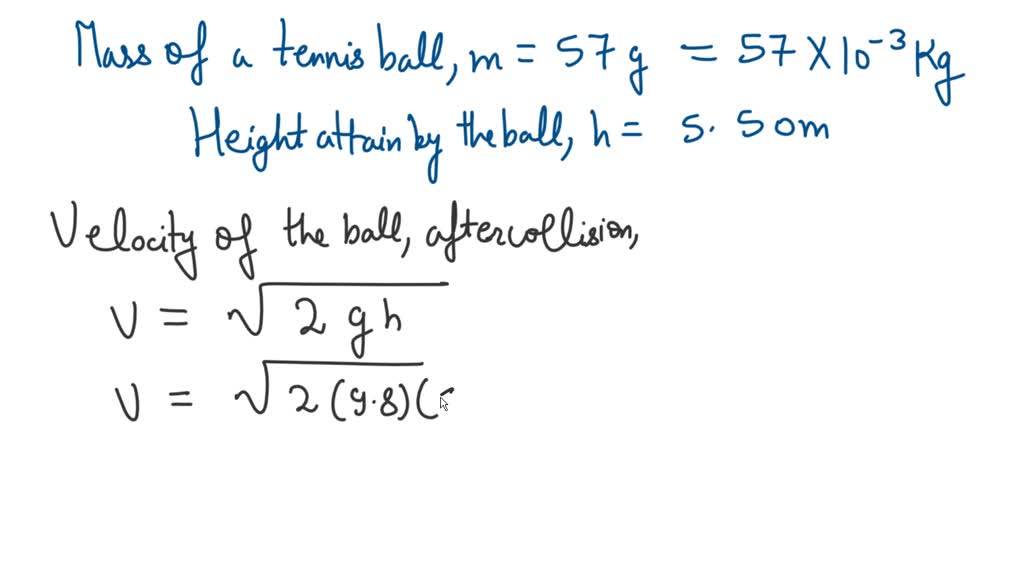 Mass of a tennis ball, m = 57 g = 57 × 10⁻³ Kg
Height attain by the ball, h = 5.50m
Velocity of the ball, after collision,
V = √2 g h
V = √2 (9.8)(